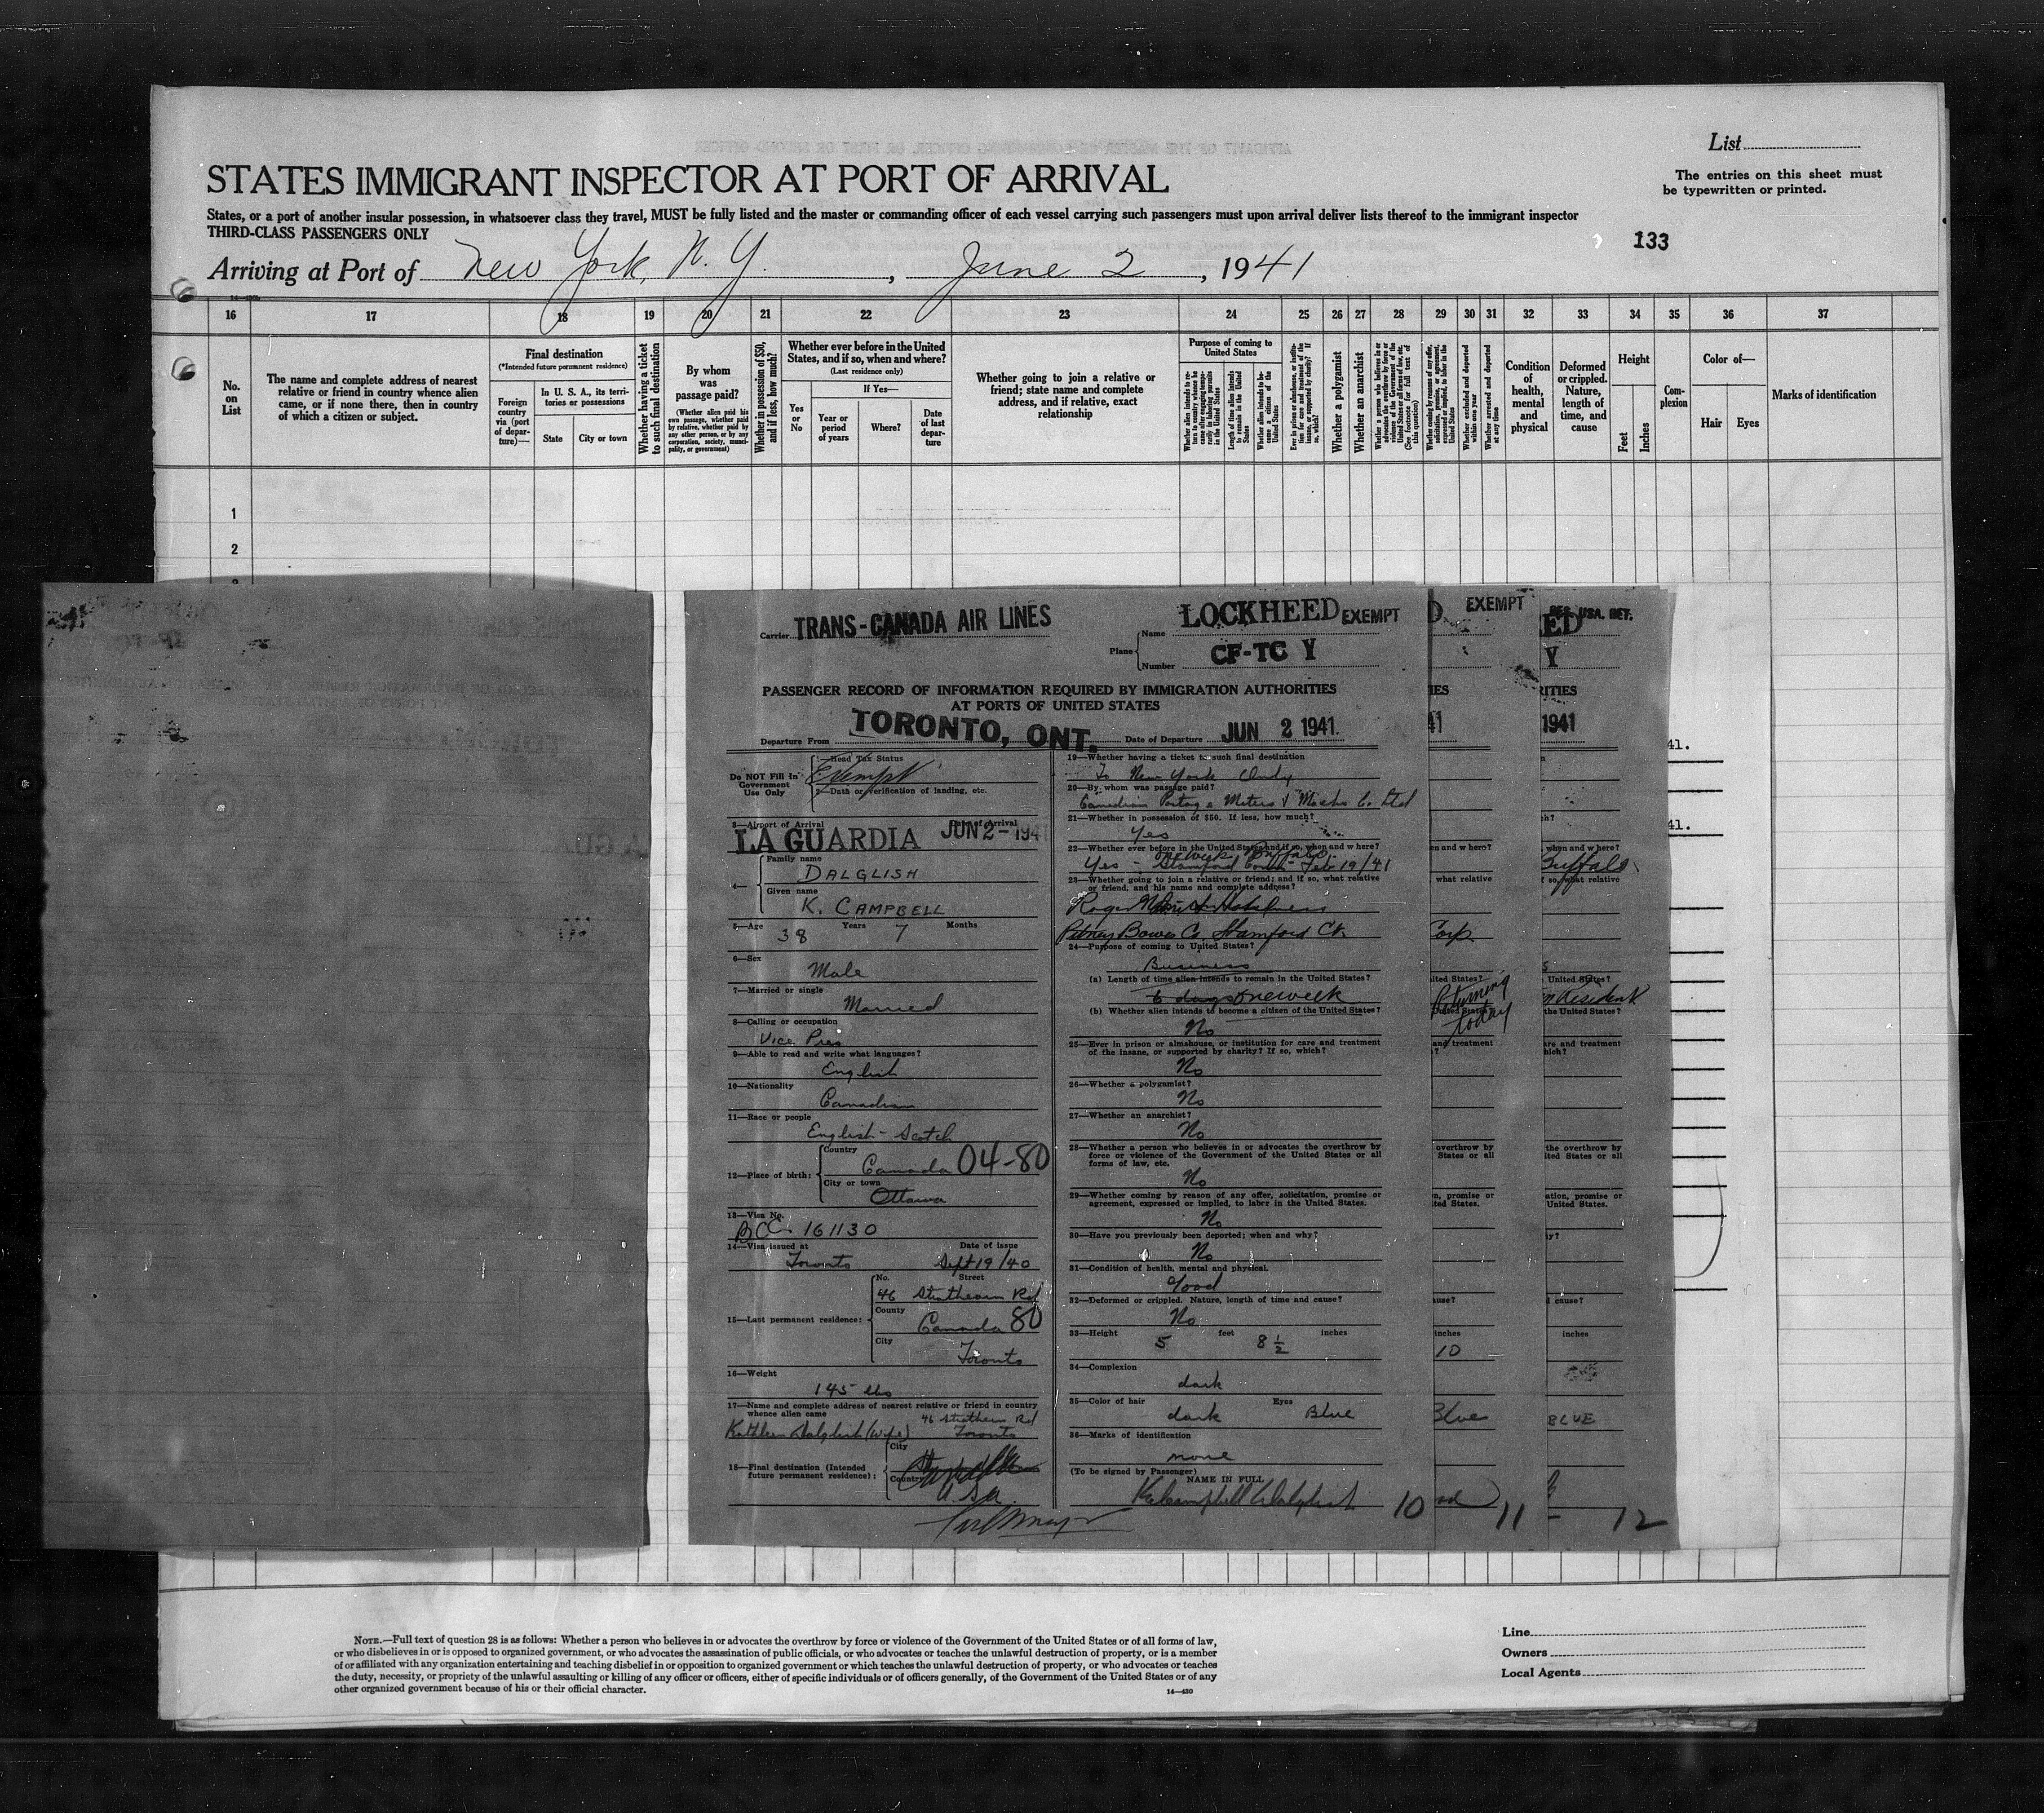 List
STATES IMMIGRANT INSPECTOR AT PORT OF ARRIVAL
The entries on this sheet must
be typewritten or printed.
States, or a port of another insular possession, in whatsoever class they travel, MUST be fully listed and the master or commanding officer of each vessel carrying such passengers must upon arrival deliver lists thereof to the immigrant inspector
THIRD-CLASS PASSENGERS ONLY
133
Arriving at Port of New York, N. Y., June 2, 1941
16 17 18 19 20 21 22 23 24 25 26 27 28 29 30 31 32 33 34 35 36 37
No.
on
List
The name and complete address of nearest
relative or friend in country whence alien
came, or if none there, then in country
of which a citizen or subject.
Final destination
(*Intended future permanent residence)
Foreign
country
via (port
of depar-
ture)—
In U. S. A., its terri-
tories or possessions
State
City or town
Whether having a ticket
to such final destination
By whom
was
passage paid?
(Whether alien paid his
own passage, whether paid
by relative, whether paid by
any other person, or by any
corporation, society, munici-
pality, or government)
Whether in possession of $50,
and if less, how much?
Whether ever before in the United
States, and if so, when and where?
(Last residence only)
Yes
or
No
If Yes—
Year or
period
of years
Where?
Date
of last
depar-
ture
Whether going to join a relative or
friend; state name and complete
address, and if relative, exact
relationship
Purpose of coming to
United States
Length of time alien intends
to remain in the United
States
Whether alien intends to be-
come a citizen of the
United States
Whether a polygamist
Whether an anarchist
(See footnote for full text of
this question)
Whether excluded and deported
within one year
Whether arrested and deported
at any time
Condition
of
health,
mental
and
physical
Deformed
or crippled.
Nature,
length of
time, and
cause
Height
Feet
Inches
Com-
plexion
Color of—
Hair
Eyes
Marks of identification
1
2
Carrier TRANS-CANADA AIR LINES
Plane
Name LOCKHEED EXEMPT
Number CF-TC Y
PASSENGER RECORD OF INFORMATION REQUIRED BY IMMIGRATION AUTHORITIES
AT PORTS OF UNITED STATES
Departure From TORONTO, ONT. Date of Departure JUN 2 1941.
Do NOT Fill In
Government
Use Only
1—Head Tax Status
Exempt
2—Data or verification of landing, etc.
3—Airport of Arrival
LA GUARDIA JUN 2 - 1941
4—
Family name
DALGLISH
Given name
K. CAMPBELL
5—Age 38 Years 7 Months
6—Sex
Male
7—Married or single
Married
8—Calling or occupation
Vice Pres
9—Able to read and write what languages?
English
10—Nationality
Canadian
11—Race or people
English - Scotch
12—Place of birth:
Country
Canada 04-80
City or town
Ottawa
13—Visa No.
BCC. 161130
14—Visa issued at Date of issue
Toronto Sept 19/40
15—Last permanent residence:
No. Street
46 Strathearn Rd
County
Canada 80
City
Toronto
16—Weight
145 lbs
17—Name and complete address of nearest relative or friend in country
whence alien came
46 Strathearn Rd
Kathleen Dalglish (Wife) Toronto
18—Final destination (Intended
future permanent residence):
City
Country
U.S.A.
19—Whether having a ticket to such final destination
To New York Only
20—By whom was passage paid?
Canadian Postage Meters & Machs Co. Ltd
21—Whether in possession of $50. If less, how much?
Yes
22—Whether ever before in the United States and if so, when and where?
one week Buffalo
Yes - Stamford Conn - Feb 19/41
23—Whether going to join a relative or friend; and if so, what relative
or friend, and his name and complete address?
Pitney Bowes Co. Stamford Ct.
24—Purpose of coming to United States?
Business
(a) Length of time alien intends to remain in the United States?
6 days one week
(b) Whether alien intends to become a citizen of the United States?
No
25—Ever in prison or almshouse, or institution for care and treatment
of the insane, or supported by charity? If so, which?
No
26—Whether a polygamist?
No
27—Whether an anarchist?
No
28—Whether a person who believes in or advocates the overthrow by
force or violence of the Government of the United States or all
forms of law, etc.
No
29—Whether coming by reason of any offer, solicitation, promise or
agreement, expressed or implied, to labor in the United States.
No
30—Have you previously been deported; when and why?
No
31—Condition of health, mental and physical.
Good
32—Deformed or crippled. Nature, length of time and cause?
No
33—Height 5 feet 8 1/2 inches
34—Complexion
dark
35—Color of hair Eyes
dark Blue
36—Marks of identification
none
(To be signed by Passenger)
NAME IN FULL
K Campbell Dalglish
10
EXEMPT
Corp.
Returning
today
inches
10
Blue
11
RES. USA. RET.
Y
1941
Buffalo
Resident
inches
BLUE
12
41.
41.
NOTE.—Full text of question 28 is as follows: Whether a person who believes in or advocates the overthrow by force or violence of the Government of the United States or of all forms of law,
or who disbelieves in or is opposed to organized government, or who advocates the assassination of public officials, or who advocates or teaches the unlawful destruction of property, or is a member
of or affiliated with any organization entertaining and teaching disbelief in or opposition to organized government or which teaches the unlawful destruction of property, or who advocates or teaches
the duty, necessity, or propriety of the unlawful assaulting or killing of any officer or officers, either of specific individuals or of officers generally, of the Government of the United States or of any
other organized government because of his or their official character.
14—430
Line
Owners
Local Agents